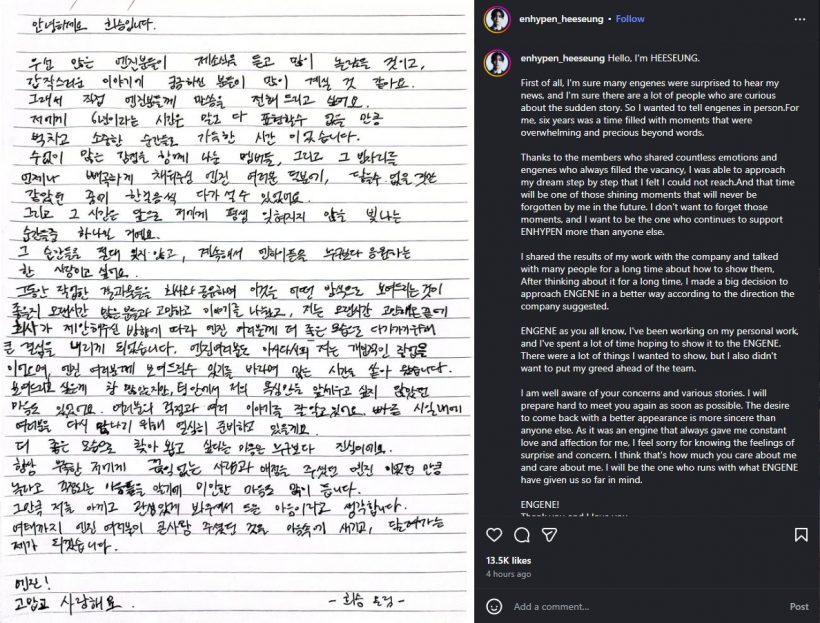 안녕하세요 희승입니다.
우선 많은 엔진분들이 제소식을 듣고 많이 놀랐을 것이고,
갑작스러운 이야기에 궁금하신 분들이 많이 계실 것 같아요.
그래서 직접 엔진분들께 말씀을 전해 드리고 싶어요.
저에게 6년이라는 시간은 말로 다 표현할수 없을 만큼
벅차고 소중한 순간들로 가득한 시간 이었습니다.
수없이 많은 감정을 함께 나눈 멤버들, 그리고 그 빈자리를
언제나 빼곡하게 채워주신 엔진 여러분 덕분에, 닿을수 없을 것만
같았던 꿈에 한걸음씩 다가 설 수 있었어요.
그리고 그 시간은 앞으로 저에게 평생 잊혀지지 않을 빛나는
순간들중 하나일 거에요.
그 순간들을 절대 잊지 않고, 계속해서 엔하이픈을 누구보다 응원하는
한 사람이고 싶어요.
그동안 작업한 결과물들을 회사와 공유하며 이것을 어떤 방식으로 보여드리는 것이
좋을지 오랜시간 많은 분들과 고민하고 이야기를 나눴고, 저는 오랜시간 고민해온 끝에
회사가 제안해주신 방향에 따라 엔진 여러분께 더 좋은 모습으로 다가가기위해
큰 결심을 내리게 되었습니다. 엔진여러분도 아시다시피 저는 개인적인 작업을
이어오며, 엔진 여러분께 보여드릴수 있기를 바라며 많은 시간을 쏟아 왔습니다.
보여드리고 싶은게 참 많았지만, 팀 안에서 저의 욕심만을 앞세우고 싶지 않았던
마음도 있었어요. 여러분의 걱정과 여러 이야기를 잘 알고 있어요. 빠른 시일내에
여러분을 다시 만나기 위해 열심히 준비하고 있을게요.
더 좋은 모습으로 찾아 오고 싶다는 마음은 누구보다 진심이에요.
항상 부족한 저에게 끊임없는 사랑과 애정을 주셨던 엔진 이었던 만큼
놀라고 걱정되는 마음들을 알기에 미안한 마음도 많이 듭니다.
그만큼 저를 아끼고 관심있게 봐주셔서 드는 마음이라고 생각합니다.
여태까지 엔진 여러분이 큰사랑 주셨던 것을 마음속에 새기고, 달려가는
제가 되겠습니다.
엔진!
고맙고 사랑해요.
- 희승 올림 -
enhypen_heeseung • Follow
enhypen_heeseung Hello, I'm HEESEUNG.
First of all, I'm sure many engenes were surprised to hear my
news, and I'm sure there are a lot of people who are curious
about the sudden story. So I wanted to tell engenes in person.For
me, six years was a time filled with moments that were
overwhelming and precious beyond words.
Thanks to the members who shared countless emotions and
engenes who always filled the vacancy, I was able to approach
my dream step by step that I felt I could not reach.And that time
will be one of those shining moments that will never be
forgotten by me in the future. I don't want to forget those
moments, and I want to be the one who continues to support
ENHYPEN more than anyone else.
I shared the results of my work with the company and talked
with many people for a long time about how to show them,
After thinking about it for a long time, I made a big decision to
approach ENGENE in a better way according to the direction the
company suggested.
ENGENE as you all know, I've been working on my personal work,
and I've spent a lot of time hoping to show it to the ENGENE.
There were a lot of things I wanted to show, but I also didn't
want to put my greed ahead of the team.
I am well aware of your concerns and various stories. I will
prepare hard to meet you again as soon as possible. The desire
to come back with a better appearance is more sincere than
anyone else. As it was an engine that always gave me constant
love and affection for me, I feel sorry for knowing the feelings of
surprise and concern. I think that's how much you care about me
and care about me. I will be the one who runs with what ENGENE
have given us so far in mind.
ENGENE!
Thank you and I love you
13.5K likes
4 hours ago
Add a comment...
Post